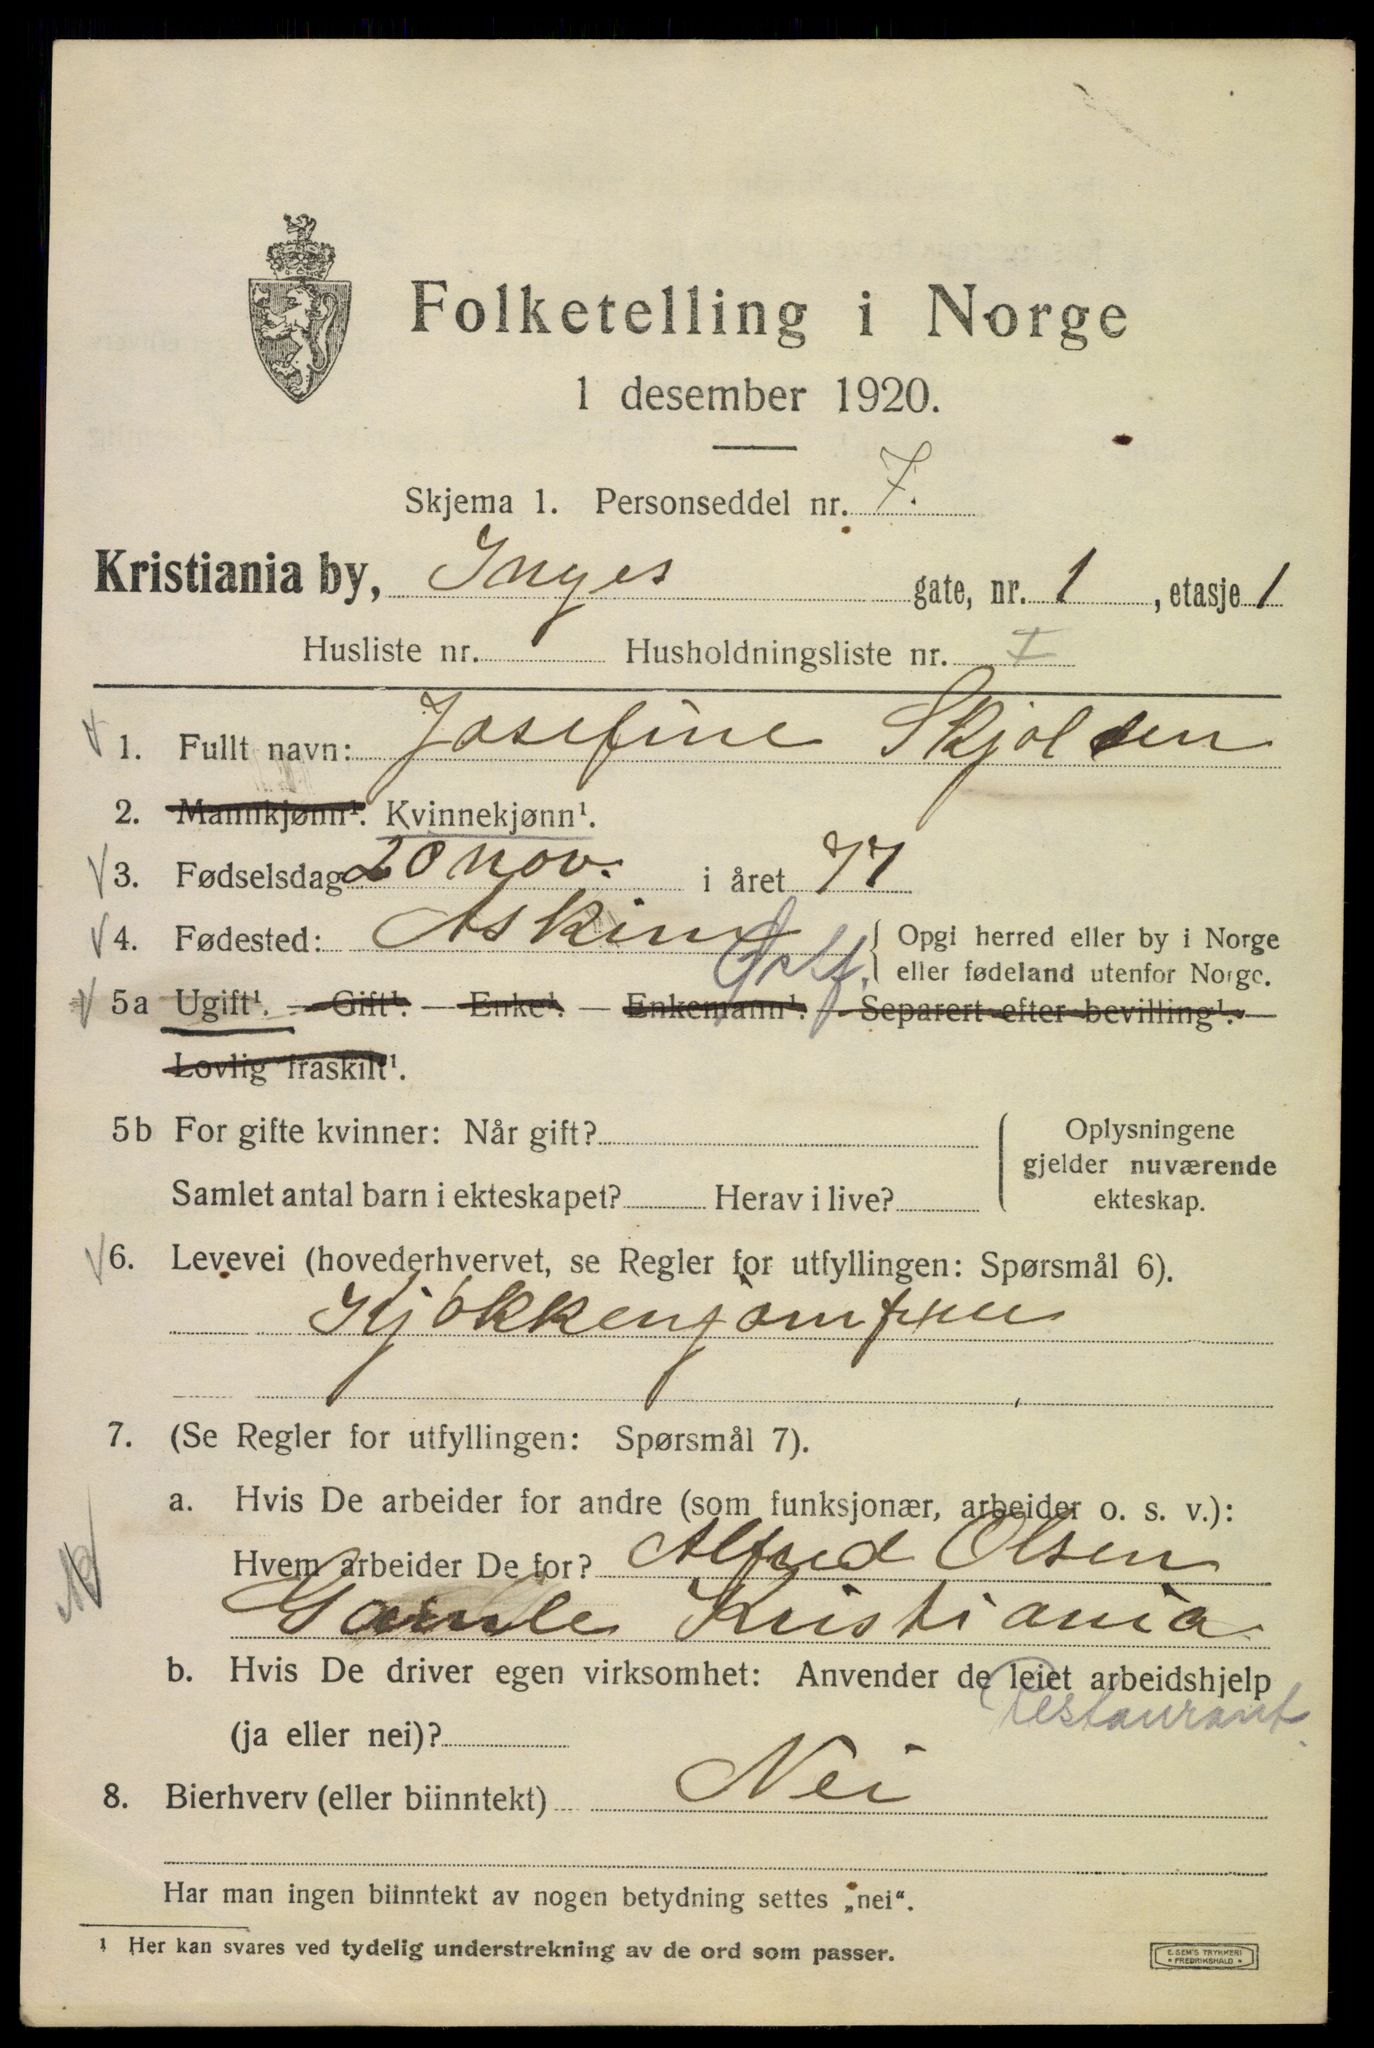 Folketelling i Norge
1 desember 1920.
Skjema 1. Personseddel nr. 7.
Kristiania by, Inges gate, nr. 1, etasje 1
Husliste nr. Husholdningsliste nr. I
1. Fullt navn: Josefine Skjolden
2. Mannkjønn¹. Kvinnekjønn¹.
3. Fødselsdag 20 nov. i året 77
4. Fødested: Askim { Opgi herred eller by i Norge
Østf. eller fødeland utenfor Norge.
5a Ugift¹. — Gift¹. — Enke¹. — Enkemann¹. — Separert efter bevilling¹. —
Lovlig fraskilt¹.
5b For gifte kvinner: Når gift? Oplysningene
gjelder nuværende
Samlet antal barn i ekteskapet? Herav i live? ekteskap.
6. Levevei (hovederhvervet, se Regler for utfyllingen: Spørsmål 6).
Kjøkkenjomfru
7. (Se Regler for utfyllingen: Spørsmål 7).
a. Hvis De arbeider for andre (som funksjonær, arbeider o. s. v.):
Hvem arbeider De for? Alfred Olsen
Gamle Kristiania
b. Hvis De driver egen virksomhet: Anvender de leiet arbeidshjelp
Restaurant.
(ja eller nei)?
8. Bierhverv (eller biinntekt) Nei
Har man ingen biinntekt av nogen betydning settes „nei“.
¹ Her kan svares ved tydelig understrekning av de ord som passer.
E. SEM'S TRYKKERI
* FREDRIKSHALD *